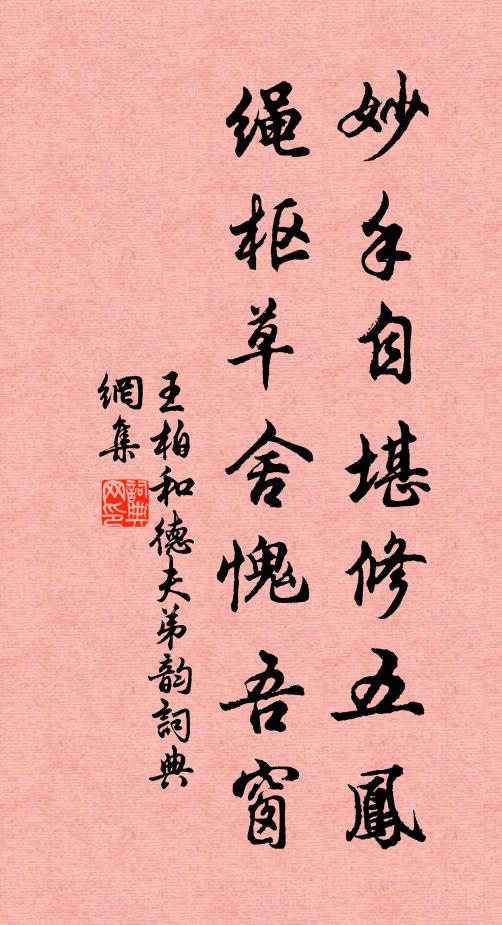 妙手自堪修五鳳
绳枢草舍愧吾窗
王柏和德夫弟韵詞典
網集
詞典
网印